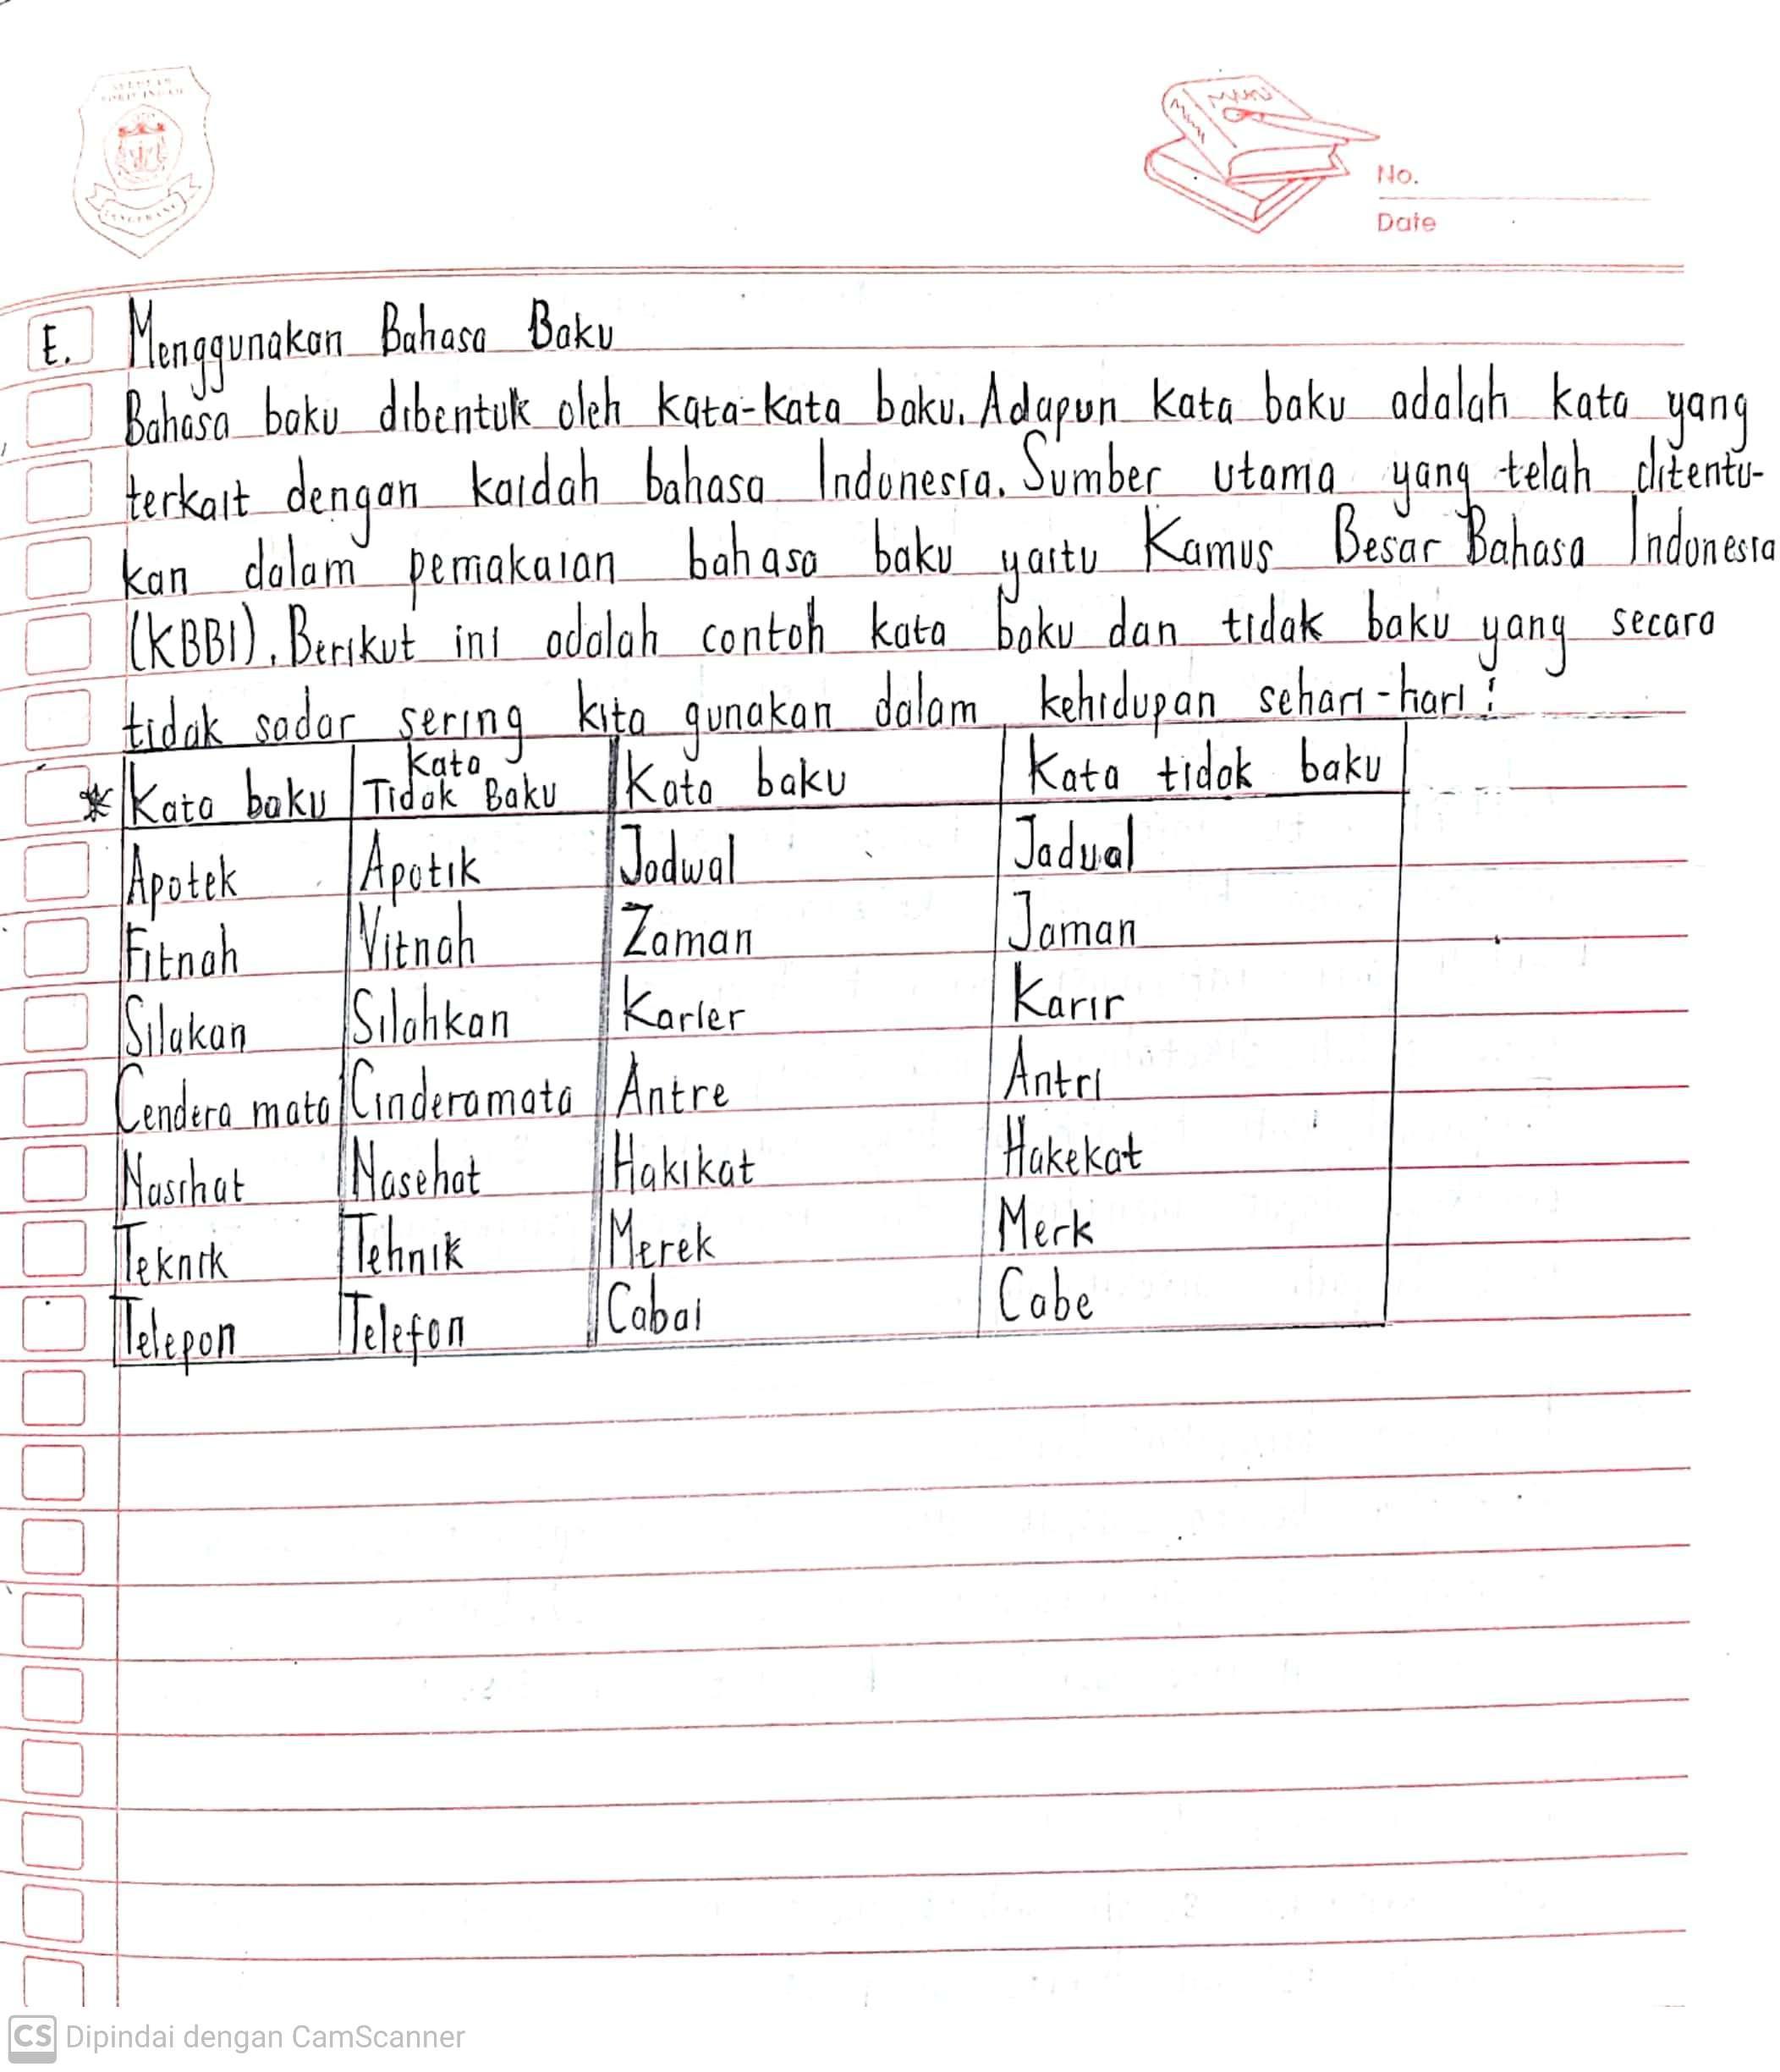 No.
Date
E. Menggunakan Bahasa Baku
Bahasa baku dibentuk oleh kata-kata baku. Adapun kata baku adalah kata yang
terkait dengan kaidah bahasa Indonesia. Sumber utama yang telah ditentu-
kan dalam pemakaian bahasa baku yaitu Kamus Besar Bahasa Indonesia
(KBBI). Berikut ini adalah contoh kata baku dan tidak baku yang secara
tidak sadar sering kita gunakan dalam kehidupan sehari-hari!
* Kata baku Kata Tidak Baku Kata baku Kata tidak baku
Apotek Apotik Jadwal Jadual
Fitnah Vitnah Zaman Jaman
Silakan Silahkan Karier Karir
Cendera mata Cinderamata Antre Antri
Nasihat Nasehat Hakikat Hakekat
Teknik Tehnik Merek Merk
Telepon Telefon Cabai Cabe
CS Dipindai dengan CamScanner